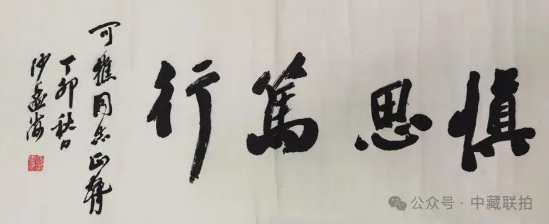 慎思篤行
可樵同志正
丁卯秋日
沙孟海
公众号·中藏联拍